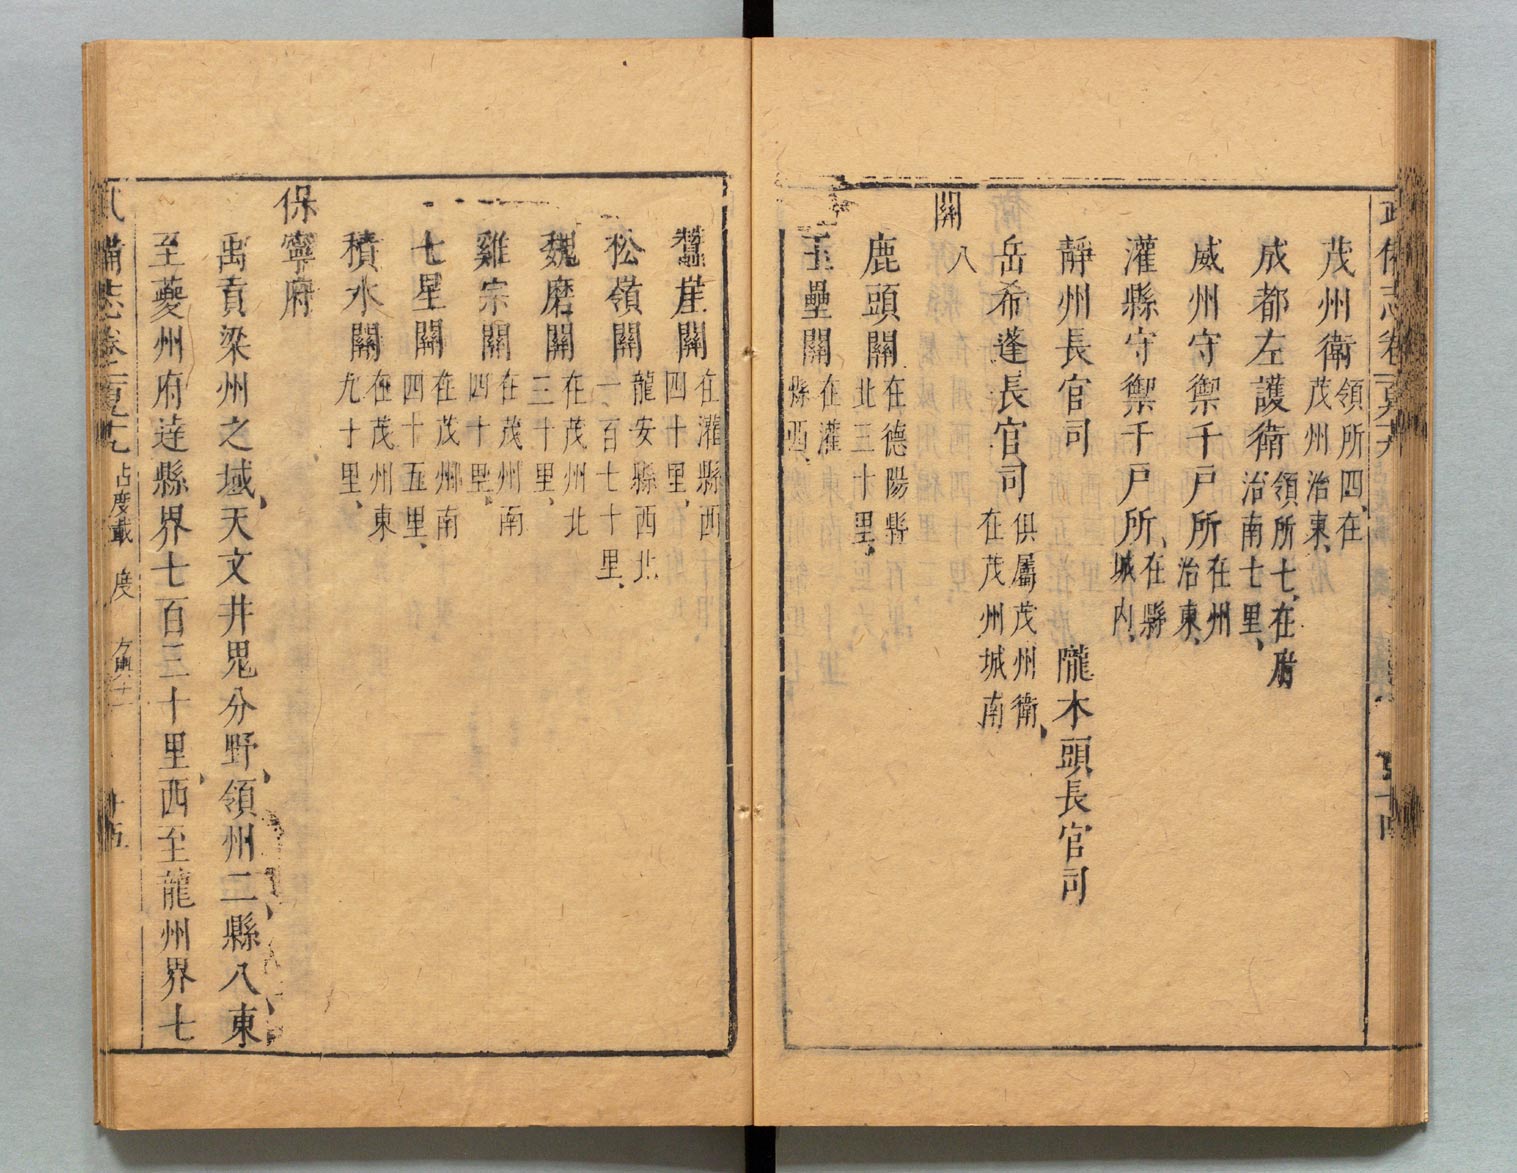 茂州衛領所四在茂州治東
成都左護衛領所七在府治南七里
威州守禦千戶所在州治東
灌縣守禦千戶所在縣城內
靜州長官司 隴木頭長官司
岳希蓬長官司俱屬茂州衛在茂州城南
關八
鹿頭關在德陽縣北三十里
玉壘關在灌縣西
蠶崖關在灌縣西四十里
松嶺關龍安縣西北一百七十里
魏磨關在茂州北三十里
雞宗關在茂州南四十里
七星關在茂州南四十五里
積水關在茂州東九十里
保寧府
禹貢梁州之域天文井鬼分野領州二縣八東
至夔州府達縣界七百三十里西至龍州界七
備志卷 占度載 度 方輿十一 十五